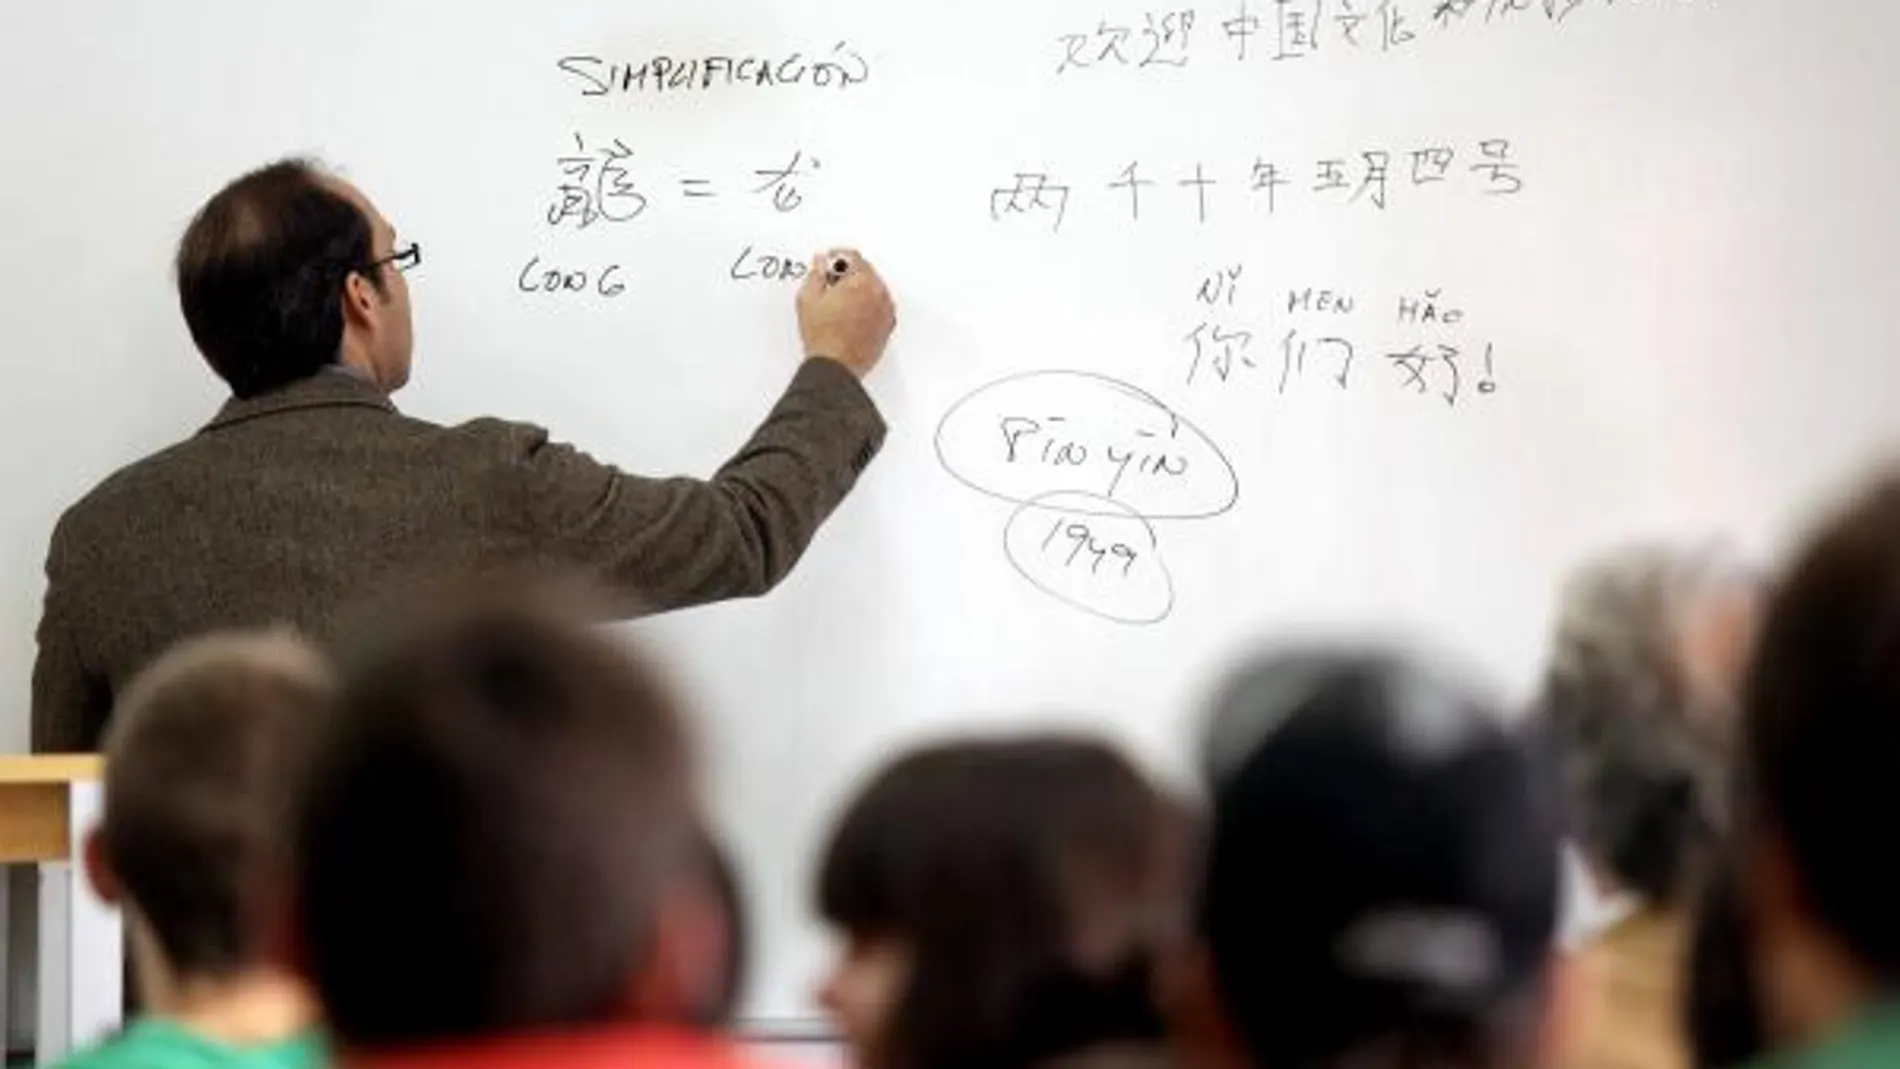 SIMPLIFICACIÓN
龍 = 龙
LONG LON
欢迎 中国 文化
两千十年五月四号
NǏ MEN HǍO
你们好!
PĪN YĪN
1949